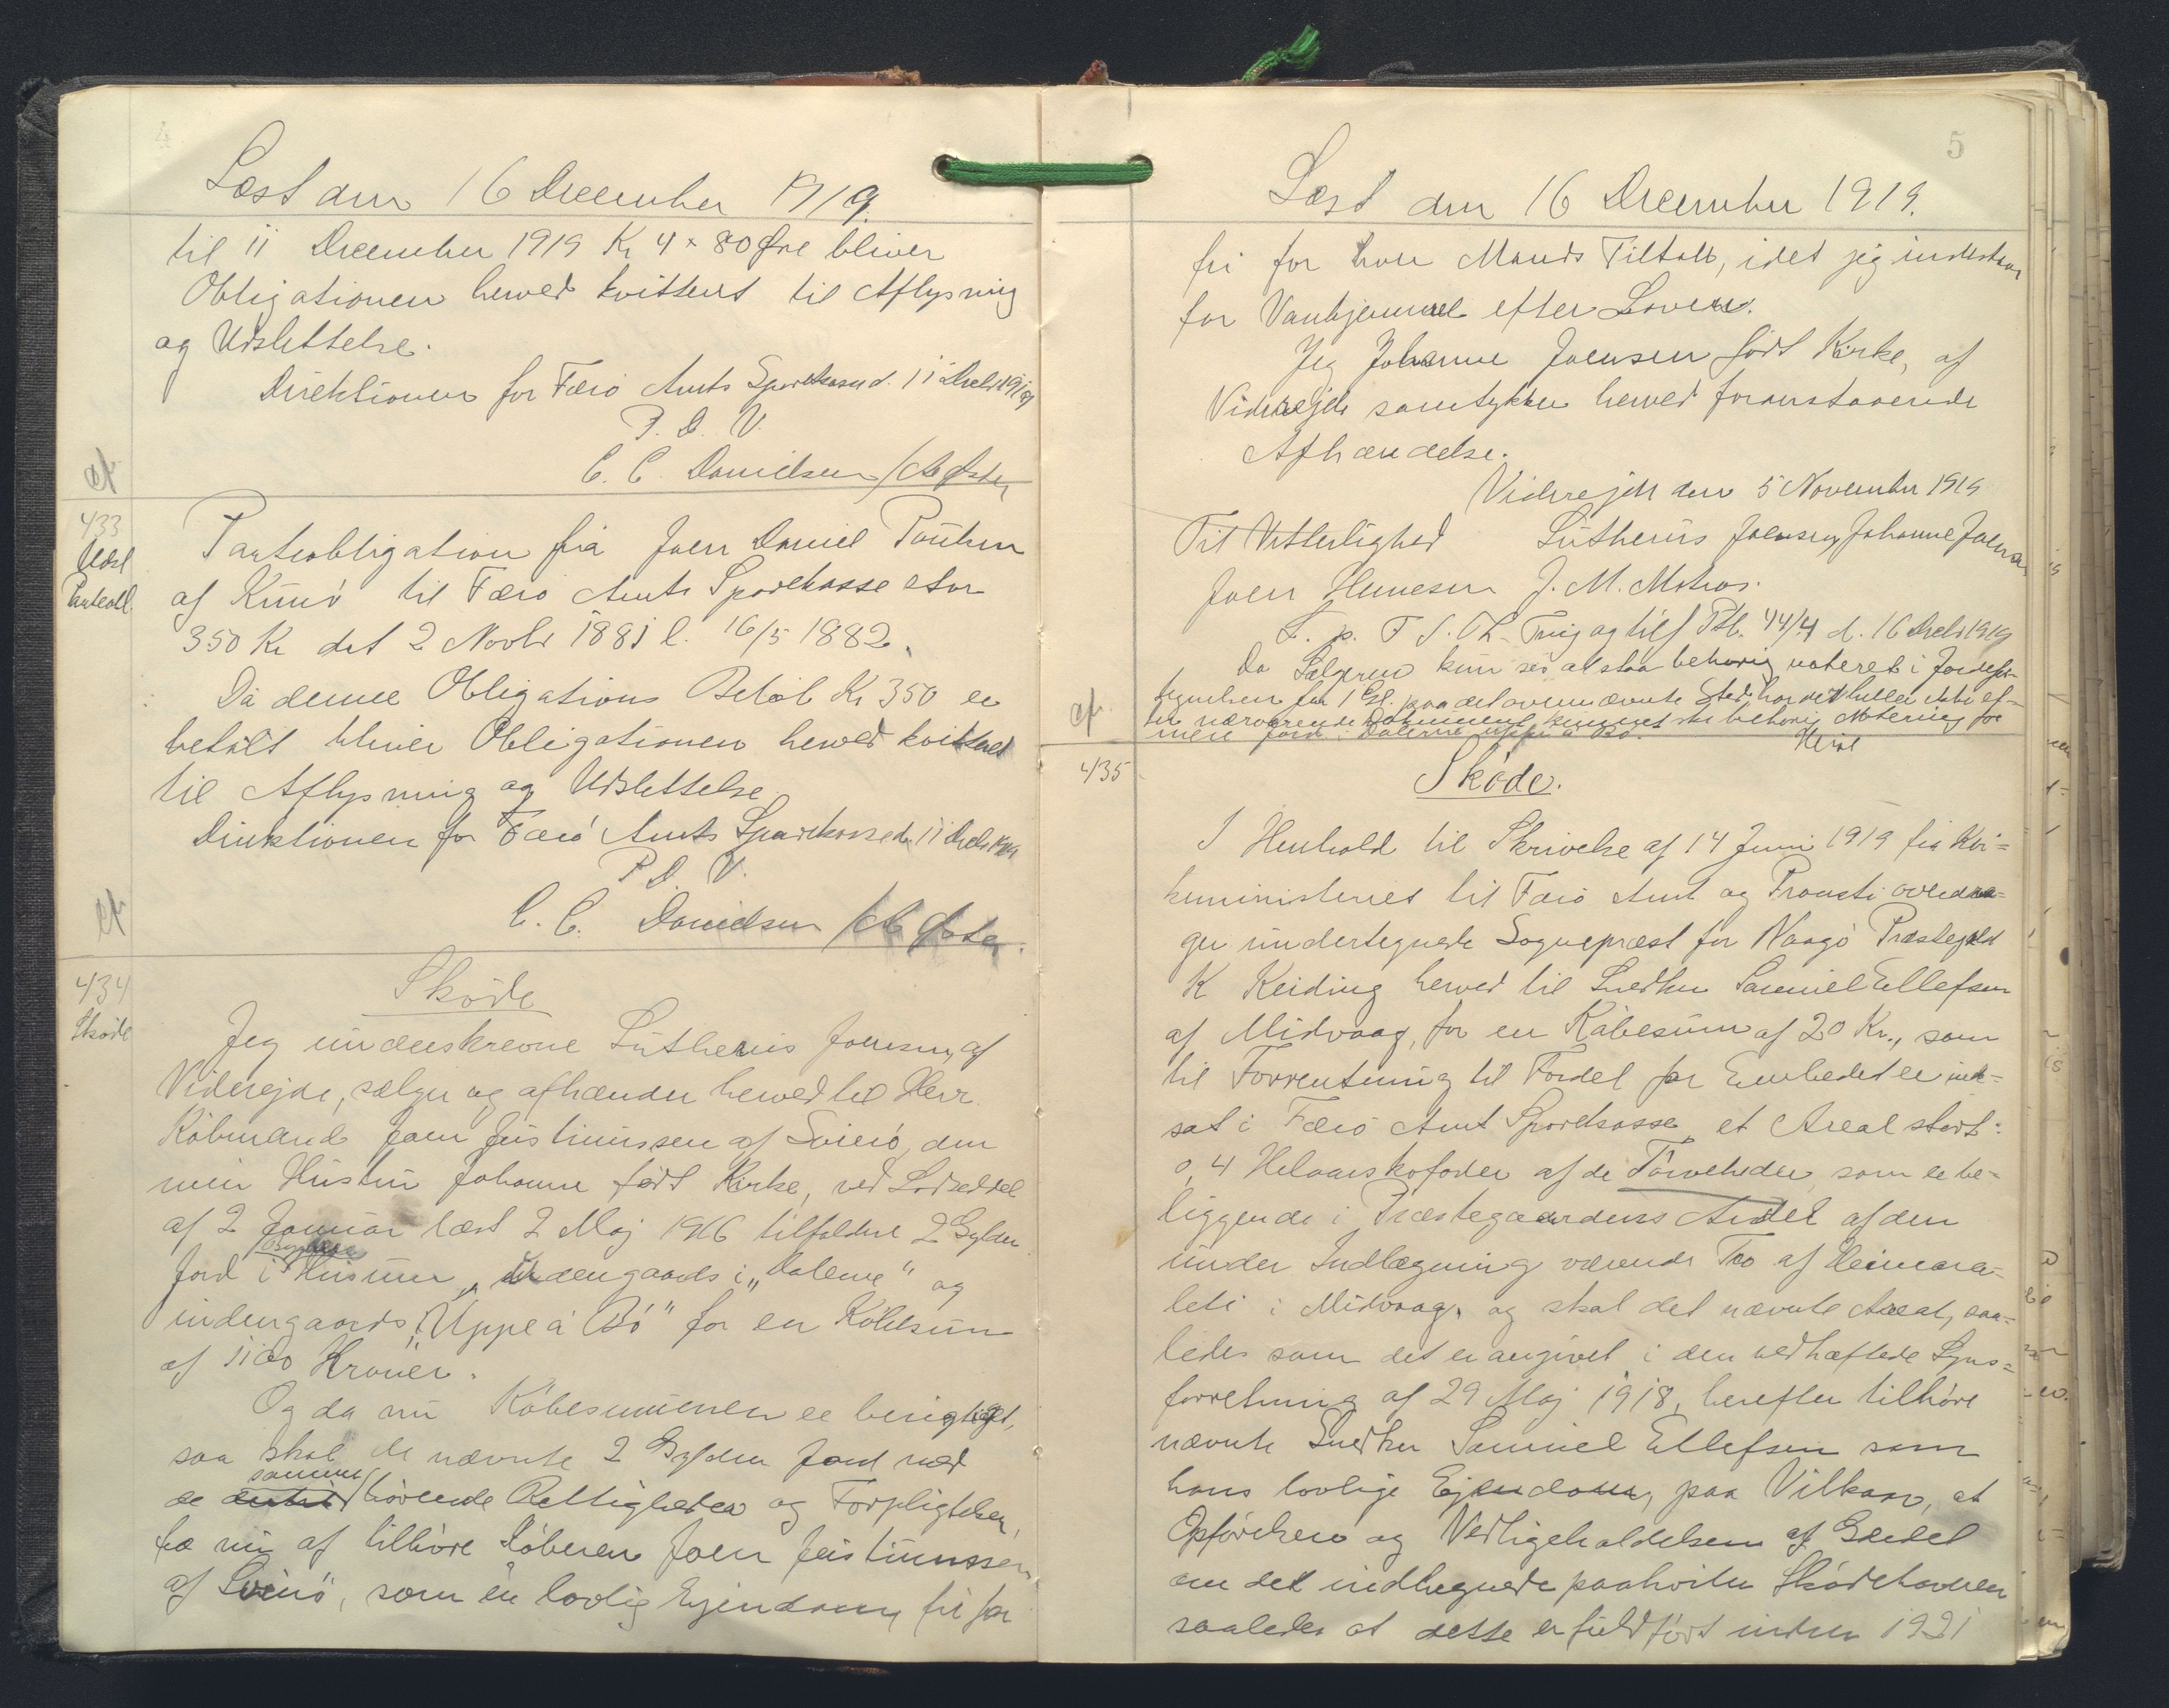 4
Læst den 16 December 1919.
til 11 December 1919 Kr 4 × 80 Øre bliver
Obligationen herved kvitteret til Aflysning
og Udslettelse.
Direktionen for Færø Amts Sparekasse d. 11 Decbr 1919
P. D. V.
C. C. Danielsen /
cf
433
Udsl
Panteobl.
Panteobligation fra Joen Daniel Poulsen
af Kunø til Færø Amts Sparekasse stor
350 Kr dat 2 Novbr 1881 l. 16/5 1882.
Da denne Obligations Beløb Kr 350 er
betalt bliver Obligationen herved kvitteret
til Aflysning og Udslettelse.
Direktionen for Færø Amts Sparekasse d. 11 Decbr 1919
P. D. V.
C. C. Danielsen /
cf
434
Skøde
Skøde
Jeg underskrevne Lutherus Joensen, af
Viderejde, sælger og afhænder herved til Herr
Købmand Joen Justinussen af Svinø, den
min Hustru Johanne født Kirke, ved Lodseddel
af 2 Januar læst 2 Maj 1916 tilfaldne 2 Gylden
Jord i Bygden Husum, „Udengaards i „Dalene" og
indengaards „Uppe á Bø" for en Købesum
af 1100 Kroner.
Og da nu Købesummen er berigtiget,
saa skal de nævnte 2 Gylden Jord med
de samme tilhørende Rettigheder og Forpligtelser,
fra nu af tilhøre Køberen Joen Justinussen
af Svinø, som en lovlig Ejendom, fri for
5
Læst den 16 December 1919.
fri for hver Mands Tiltale, idet jeg indestaar
for Vanhjemmel efter Loven.
Jeg Johanne Joensen født Kirke, af
Viderejde samtykker herved foranstaaende
Afhændelse.
Viderejde den 5 November 1919
Til Vitterlighed Lutherus Joensen, Johanne Joensen
Joen Hennesen J. M. Matras.
L. p. F. S. Th. Ting og tilf Ptb. 44/4 d. 16 Decbr 1919
Da Sælgeren kun ses at staa behørig noteret i Jordefor-
tegnelsen for 1 Gl. paa det ovennævnte Sted har der heller ikke ef-
ter nærværende Dokument kunnet ske behørig Notering for
mere Jord i Dalerne uppi á Bø.
cf.
435
Skøde.
I Henhold til Skrivelse af 14 Juni 1919 fra Kir=
keministeriet til Færø Amt og Provsti overdra=
ger undertegnede Sognepræst for Vaagø Præstegæld
K Keiding herved til Snedker Samuel Ellefsen
af Midvaag, for en Købesum af 20 Kr., som
til Forrentning til Fordel for Embedet er ind=
sat i Færø Amt Sparekasse, et Areal stort:
0,4 Helaarskofoder af de Tørveheder, som er be-
liggende i Præstegaardens Andel af den
under Indlægning værende Trø af Heimara-
leti i Midvaag, og skal det nævnte Areal, saa=
ledes som det er angivet i den vedhæftede Syns=
forretning af 29 Maj 1918, herefter tilhøre
nævnte Snedker Samuel Ellefsen som
hans lovlige Ejendom, paa Vilkaar, at
Opførelsen og Vedligeholdelsen af Gærdet
om det indhegnede paahviler Skødehaveren
saaledes at dette er fuldført inden 1921